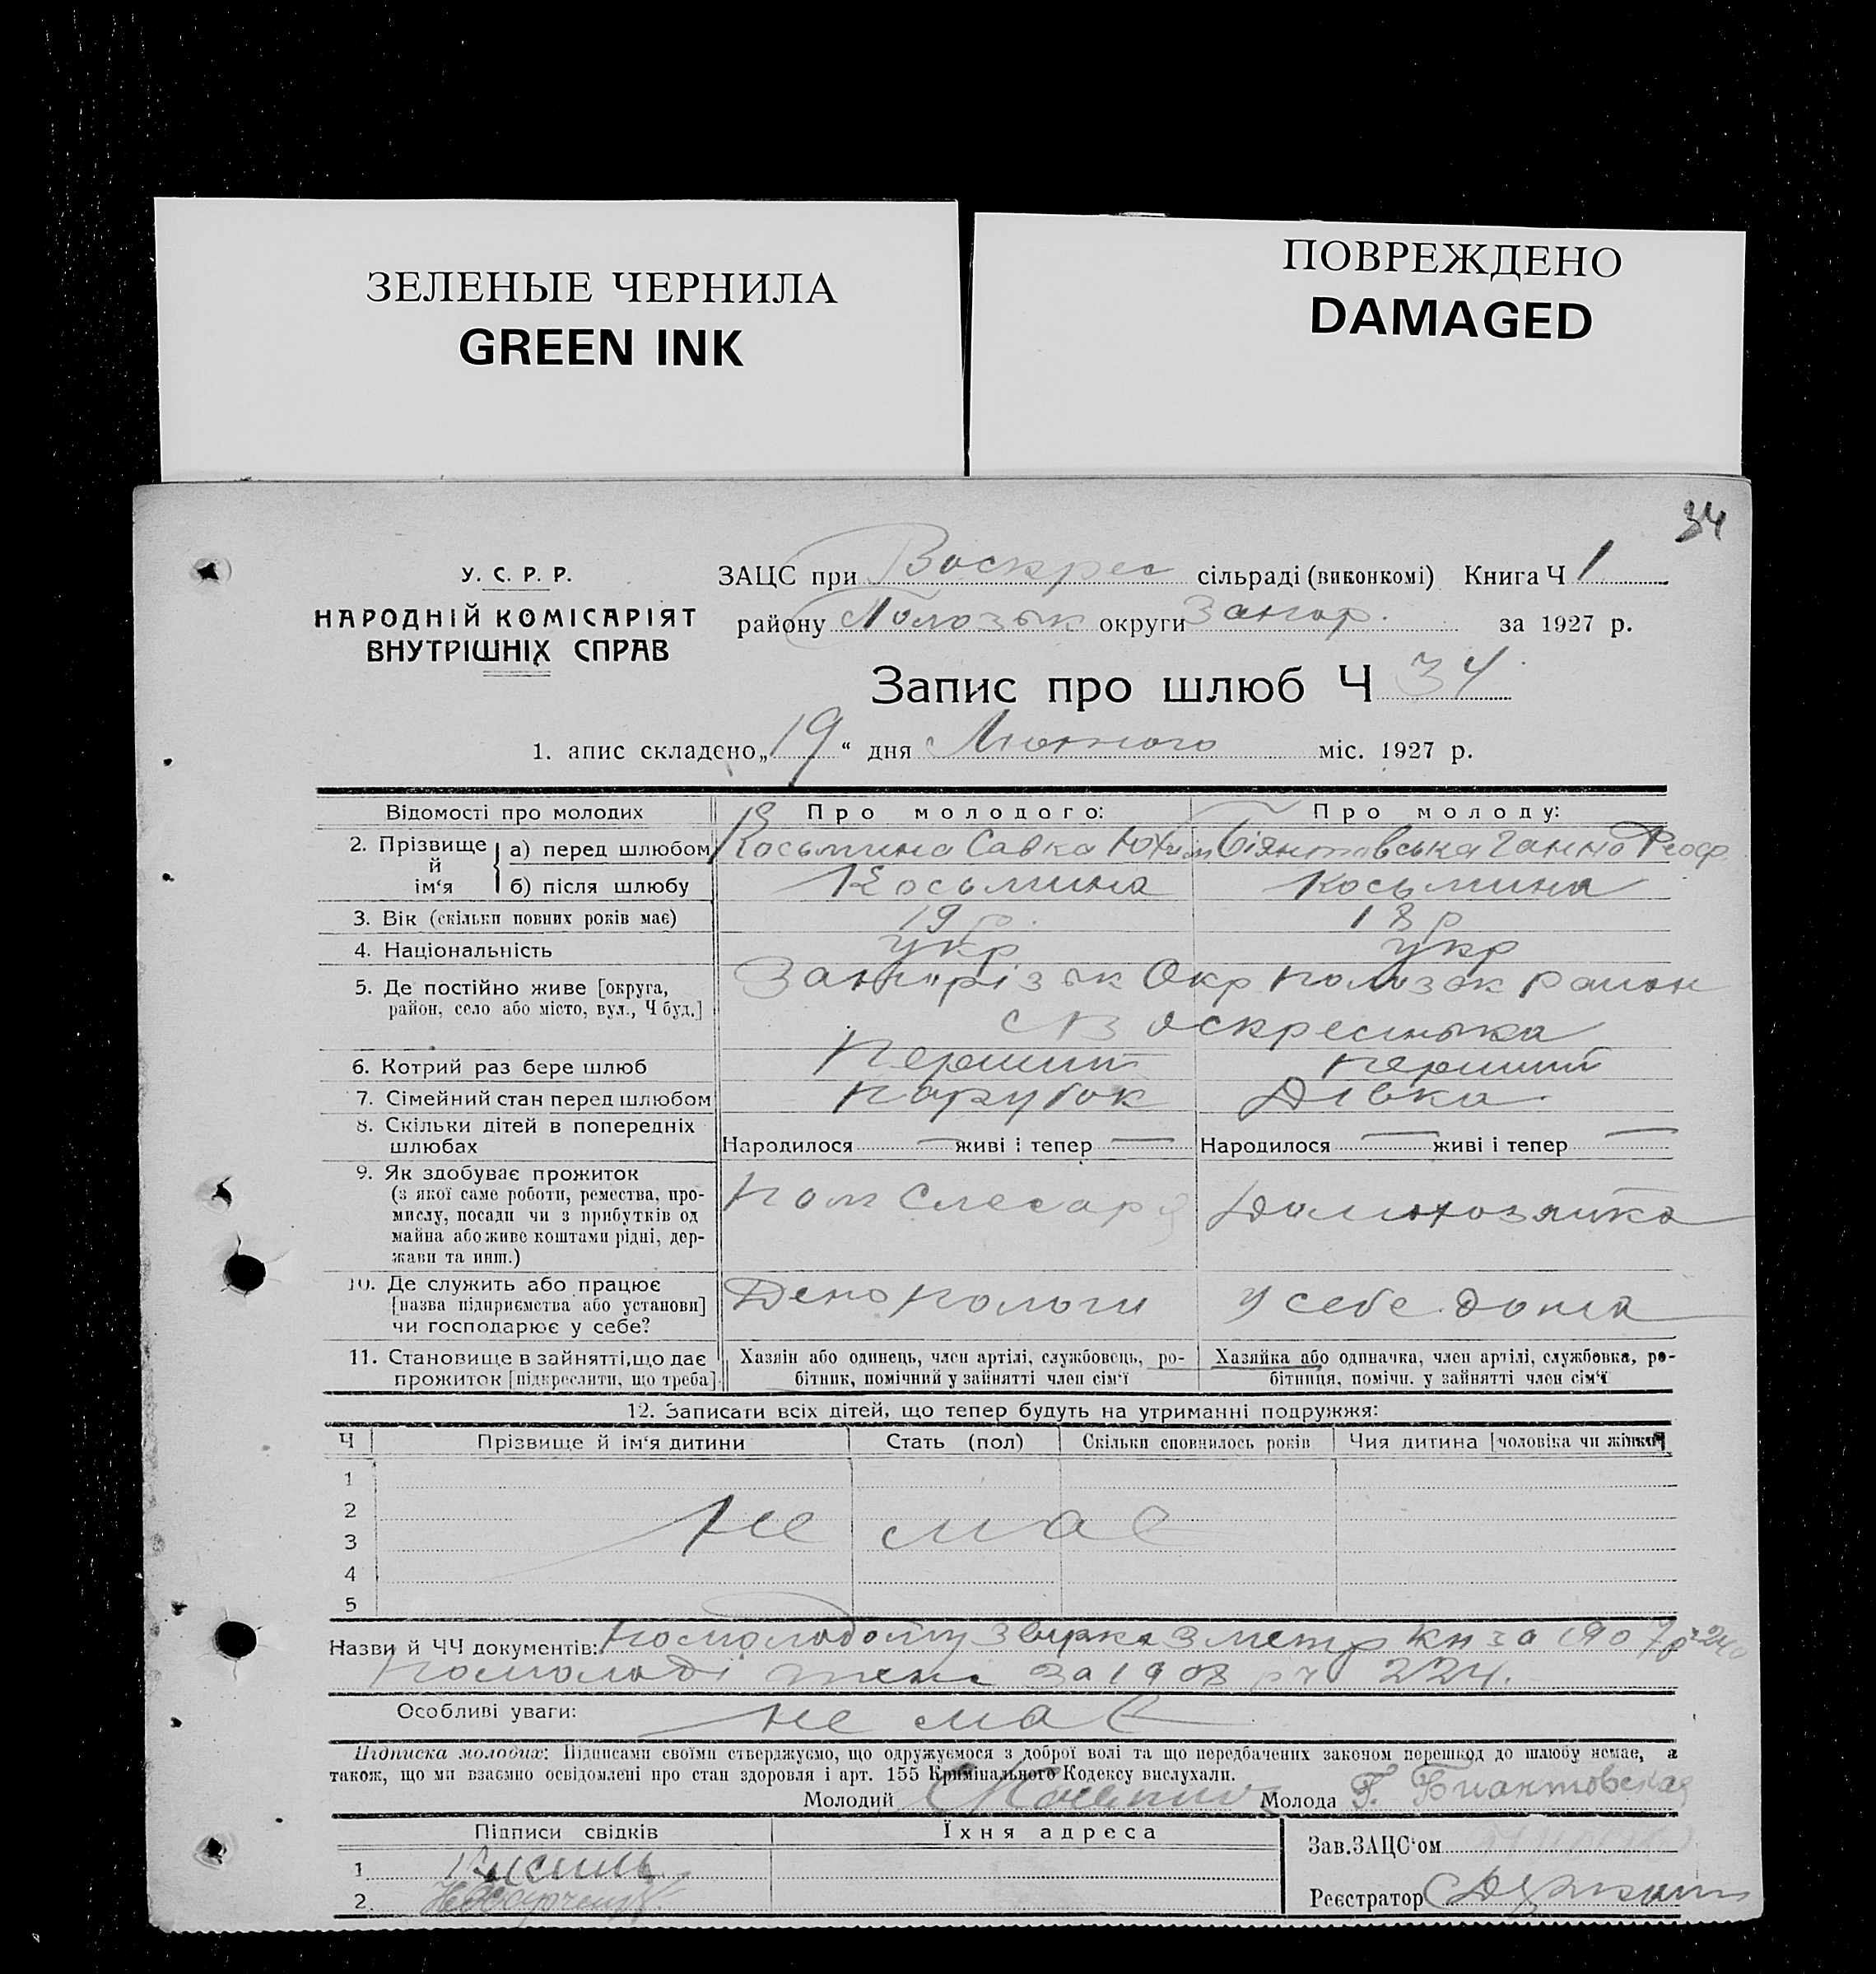 ЗЕЛЕНЫЕ ЧЕРНИЛА
GREEN INK
ПОВРЕЖДЕНО
DAMAGED
34
У. С. Р. Р.
НАРОДНІЙ КОМІСАРІЯТ
ВНУТРІШНІХ СПРАВ
ЗАЦС при Воскрес сільраді (виконкомі) Книга Ч 1
району Пологзьк округи Запор. за 1927 р.
Запис про шлюб Ч 34
1. апис складено „19“ дня Лютого міс. 1927 р.
Відомості про молодих Про молодого: Про молоду:
2. Прізвище й ім‘я
а) перед шлюбом Косьмина Савка Юхим Біянтовська Ганна Феоф
б) після шлюбу Косьмина Косьмина
3. Вік (скільки повних років має) 19 р. 18 р
4. Національність укр укр
5. Де постійно живе [округа, Запорізьк Окр Полозьк район
район, село або місто, вул., Ч буд.] с Воскресенька
6. Котрий раз бере шлюб Перший перший
7. Сімейний стан перед шлюбом парубок Дівка
8. Скільки дітей в попередніх
шлюбах Народилося — живі і тепер — Народилося — живі і тепер —
9. Як здобуває прожиток
(з якої саме роботи, ремества, про- Пом Слесаря Домохозяйка
мислу, посади чи з прибутків од
майна або живе коштами рідні, дер-
жави та инш.)
10. Де служить або працює
[назва підприємства або установи] Депо Пологи у себе дома
чи господарює у себе?
11. Становище в зайнятті, що дає Хазяін або одинець, член артілі, службовець, ро- Хазяйка або одиначка, член артілі, службовка, ро-
прожиток [підкреслити, що треба] бітник, помічний у зайнятті член сім‘ї бітниця, помічн. у зайнятті член сім‘ї
12. Записати всіх дітей, що тепер будуть на утриманні подружжя:
Ч Прізвище й ім‘я дитини Стать (пол) Скільки сповнилось років Чия дитина [чоловіка чи жінки]
1
2
не має
3
4
5
Назви й ЧЧ документів: По молодому звірка з метр кн за 1907 р ч 240
По молоді теж за 1908 р ч 224.
Особливі уваги: не має
Підписка молодих: Підписами своїми стверджуємо, що одружуємося з доброї волі та що передбачених законом перешкод до шлюбу немає, а
також, що ми взаємно освідомлені про стан здоровля і арт. 155 Кримінального Кодексу вислухали.
Молодий Молода Г. Биантовская
Підписи свідків Їхня адреса
Зав. ЗАЦС‘ом
1
2
Реєстратор